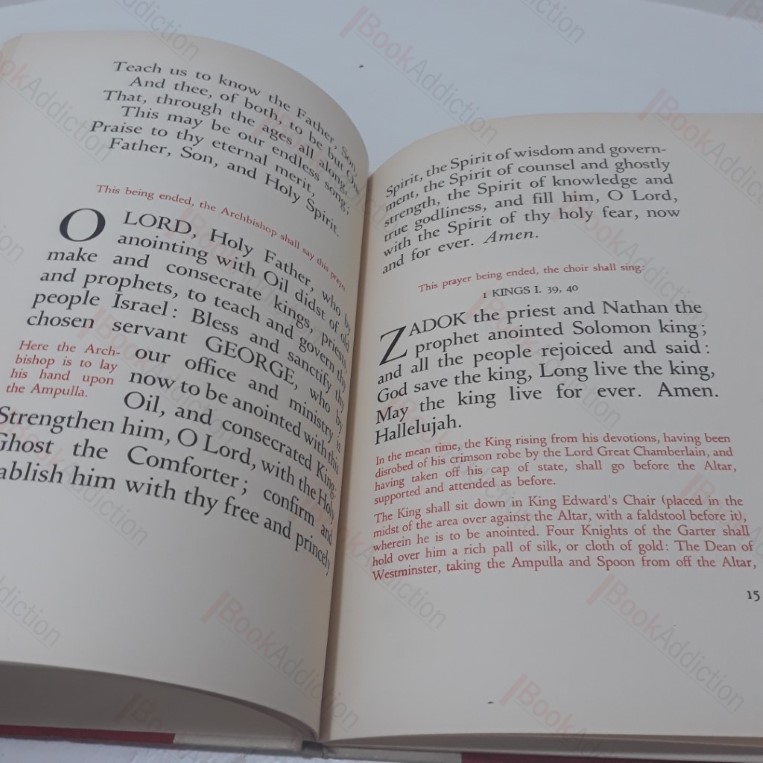 Teach us to know the Father, Son,
And thee, of both, to be but One
That, through the ages all along,
This may be our endless song;
Praise to thy eternal merit,
Father, Son, and Holy Spirit.
This being ended, the Archbishop shall say this prayer
O LORD, Holy Father, who by
anointing with Oil didst of old
make and consecrate kings, priests
and prophets, to teach and govern thy
people Israel: Bless and sanctify thy
chosen servant GEORGE, who by
Here the Arch-
bishop is to lay
his hand upon
the Ampulla.
our office and ministry is
now to be anointed with this
Oil, and consecrated King:
Strengthen him, O Lord, with the Holy
Ghost the Comforter; confirm and
ablish him with thy free and princely
Spirit, the Spirit of wisdom and govern-
ment, the Spirit of counsel and ghostly
strength, the Spirit of knowledge and
true godliness, and fill him, O Lord,
with the Spirit of thy holy fear, now
and for ever. Amen.
This prayer being ended, the choir shall sing:
1 KINGS I. 39, 40
ZADOK the priest and Nathan the
prophet anointed Solomon king;
and all the people rejoiced and said:
God save the king, Long live the king,
May the king live for ever. Amen.
Hallelujah.
In the mean time, the King rising from his devotions, having been
disrobed of his crimson robe by the Lord Great Chamberlain, and
having taken off his cap of state, shall go before the Altar,
supported and attended as before.
The King shall sit down in King Edward's Chair (placed in the
midst of the area over against the Altar, with a faldstool before it),
wherein he is to be anointed. Four Knights of the Garter shall
hold over him a rich pall of silk, or cloth of gold: The Dean of
Westminster, taking the Ampulla and Spoon from off the Altar,
15
BookAddiction